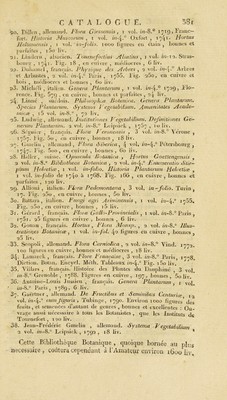 CATALOGUE. 581
20. Dillen, allemand. Flora Giessensis, 1 vol. in-8.º 1719, Francfort. Historia Muscorum, 1 vol. in-4.º Oxfort, 1741. Hortus
Helthamensis, 1 vol. in-folio.
parfaites, 150 liv.
21. Lindern, alsacien. Tournefortius Alsaticus, 1 vol. in-12. Strasbourg, 
22. Duhamel, français. Physique des Arbres, 2 vol. in-4.º Arbres
et Arbustes, 2 vol. in-4.º Paris, 1755. Fig. 250, en cuivre et
bois, médiocres et bonnes, 80 liv.
23. Micheli, italien. Genera Plantarum, 1 vol. in-4.º 1729, Florence. 
24. Linné, suédois. Philosophia Botanica. Genera Plantarum.
Species Plantarum. Systema Vegetabilium. Amœnitates Academicæ, 
25. Ludwig, allemand. Institutiones Vegetabilium. Definitiones Generum 
26. Seguier, français. Flora Veronensis, 3 vol. in-8.º Vérone,
1745. Fig. 50, en cuivre, bonnes, 18 liv.
27. Gmelin, allemand. Flora Siberica, 4 vol. in-4.º Pétersbourg,
1747. Fig. 300, en cuivre, bonnes, 60 liv.
28. Haller, suisse. Opuscula Botanica, Hortus Goettingensis,
2 vol. in-8.º Bibliotheca Botanica, 2 vol. in-4.º Enumeratio Stirpium Helvetiæ, 1 vol. in-folio. Historia Plantarum Helvetiæ,
1 vol. in-folio de 1740 à 1768. Fig. 166, en cuivre, bonnes et
parfaites, 120 liv.
29. Allioni, italien. Flora Pedemontana, 3 vol. in-folio. Turin,
1785. Fig. 250, en cuivre, bonnes, 80 liv.
30. Battara, italien. Fungi agri Ariminensis, 1 vol. in-4.º 1755.
Fig. 250, en cuivre, médiocres, 15 liv.
31. Gérard, français. Flora Gallo-Provincialis, 1 vol. in-8.º Paris,
1761. 25 figures en cuivre, bonnes, 6 liv.
32. Gouan, français. Hortus, Flora Monsp., 2 vol. in-8.º Illustrationes Botanicæ, 1 vol. in-fol. 40 figures en cuivre, bonnes,
25 liv.
33. Scopoli, allemand. Flora Carniolica, 2 vol. in-8.º Vind. 1772.
120 figures en cuivre, bonnes et médiocres, 18 liv.
34. Lamarck, français. Flore Françoise, 3 vol. in-8.º Paris, 1778.
Diction. Botan. Encycl. Méth. Tableaux in-4.º Fig. 
35. Villars, français. Histoire des Plantes du Dauphiné, 3 vol.
in-8.º Grenoble, 1788. Figures en cuivre, 
36. Antoine-Louis Jussieu, français. Genera Plantarum, 1 vol.
in-8.º Paris, 1789, 6 liv.
37. Gærtner, allemand. De Fructibus et Seminibus Centuriæ, 
vol. in-4.º cum figuris, Tubinge, 1790. Environ 1200 figures des
fruits, et semences d'autant de genres, bonnes et excellentes : Ouvrage aussi nécessaire à tous les Botanistes, que les Instituts de
Tournefort, 120 liv.
38. Jean-Frédéric Gmelin, allemand. Systema Vegetabilium,
2 vol. in-8.º Leipsick, 1791, 18 liv.
Cette Bibliothèque Botanique, quoique bornée au plus
nécessaire, coûtera cependant à l'Amateur environ 1600 liv.